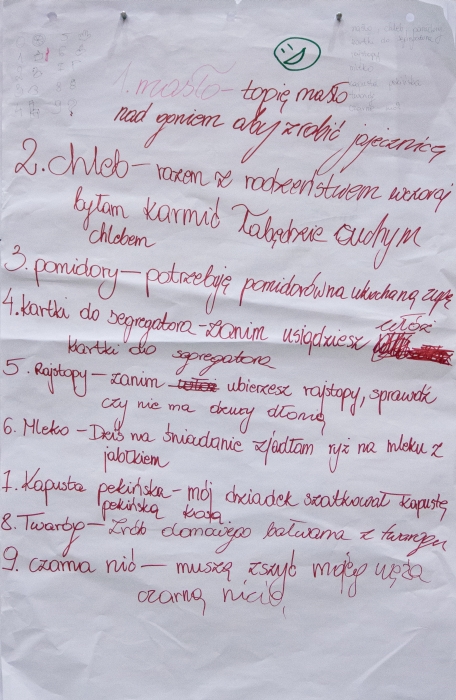 1. masło - topię masło
nad ogniem aby zrobić jajecznicę
2. chleb - razem z rodzeństwem wczoraj
byłam karmić łabędzie suchym
chlebem
3. pomidory - potrzebuję pomidorówna ukochaną zupę
4. Kartki do segregatora - zanim usiądziesz włóż
kartki do sgregatora
5. Rajstopy - zanim ubierzesz rajstopy, sprawdź
czy nie ma dziury dłonią
6. Mleko - Dziś na śniadanie zjadłam ryż na mleku z
jabłkiem
7. Kapusta pekińska - mój dziadek szatkował kapustę
pekińską kosą
8. Twaróg - Zrób domowego bałwana z twarogu
9. czarna nić - muszę zszyć mojego węża
czarną nicią